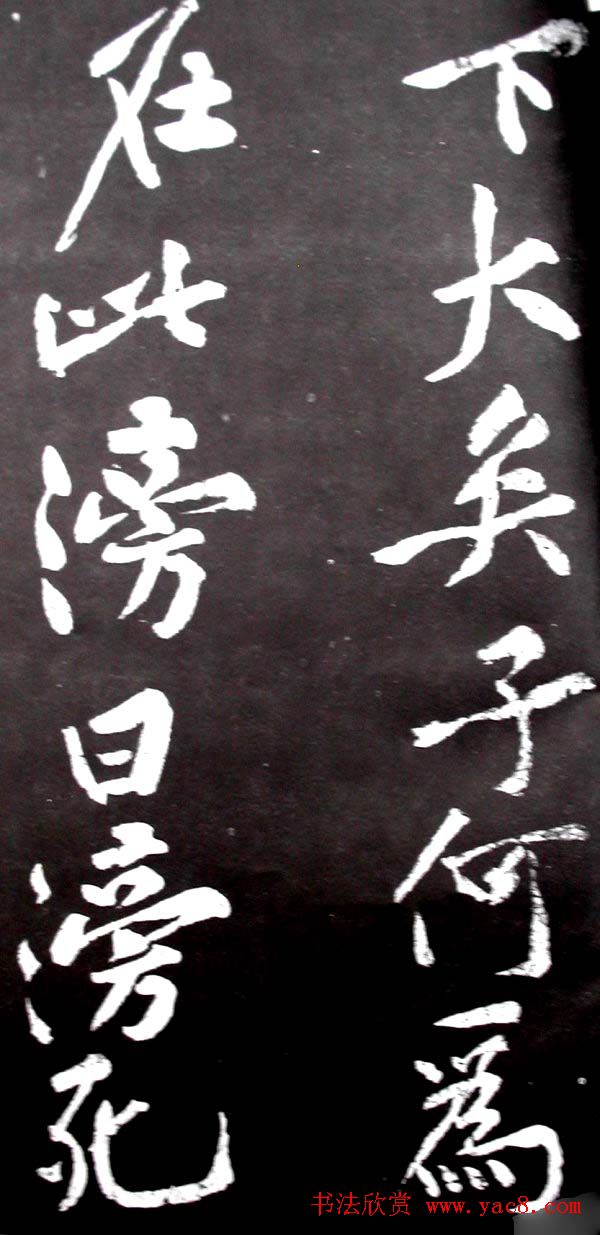 下大矣子何為
在此滂曰滂死
书法欣赏 www.yac8.com